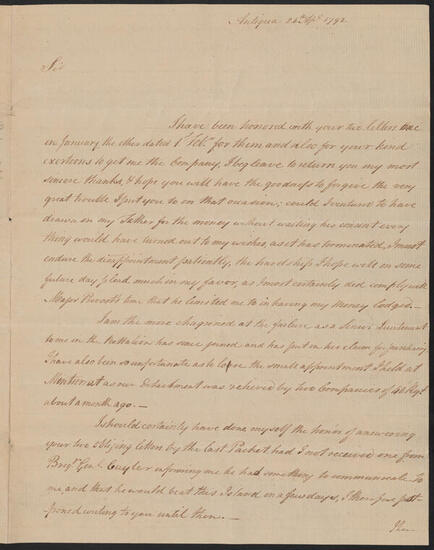 Antigua 24th Apl. 1792
Sir
I have been honored with your two letters one
in January the other dated 1st Feby. for them and also for your kind
exertions to get me the Company, I beg leave to return you my most
sincere thanks, & hope you will have the goodness to forgive the very
great trouble I put you to on that occasion; could I venture to have
drawn on my Father for the money without waiting his consent every
thing would have turned out to my wishes, as it has terminated, I must
endure the disappointment patiently, the hardship I hope will in some
future day plead much in my favor, as I most certainly did comply with
Major time that he limited me to in having my Money Lodged.—
I am the more chagrened at the failure as a Senior Lieutenant
to me in the Battalion has since joined and has put in his claim for purchasing
I have also been so unfortunate as to lose the small appointment I held at
Montserrat as our Detachment was relieved by two Companies of Regt.
about a month ago.—
I should certainly have done myself the honor of answering
your two obliging letters by the last Packet had I not received one from
Brigr. Genl. Cuyler informing me he had something to communicate to
me and that he would be at this Island in a few days, I therefore post-
poned writing to you until then.—
The